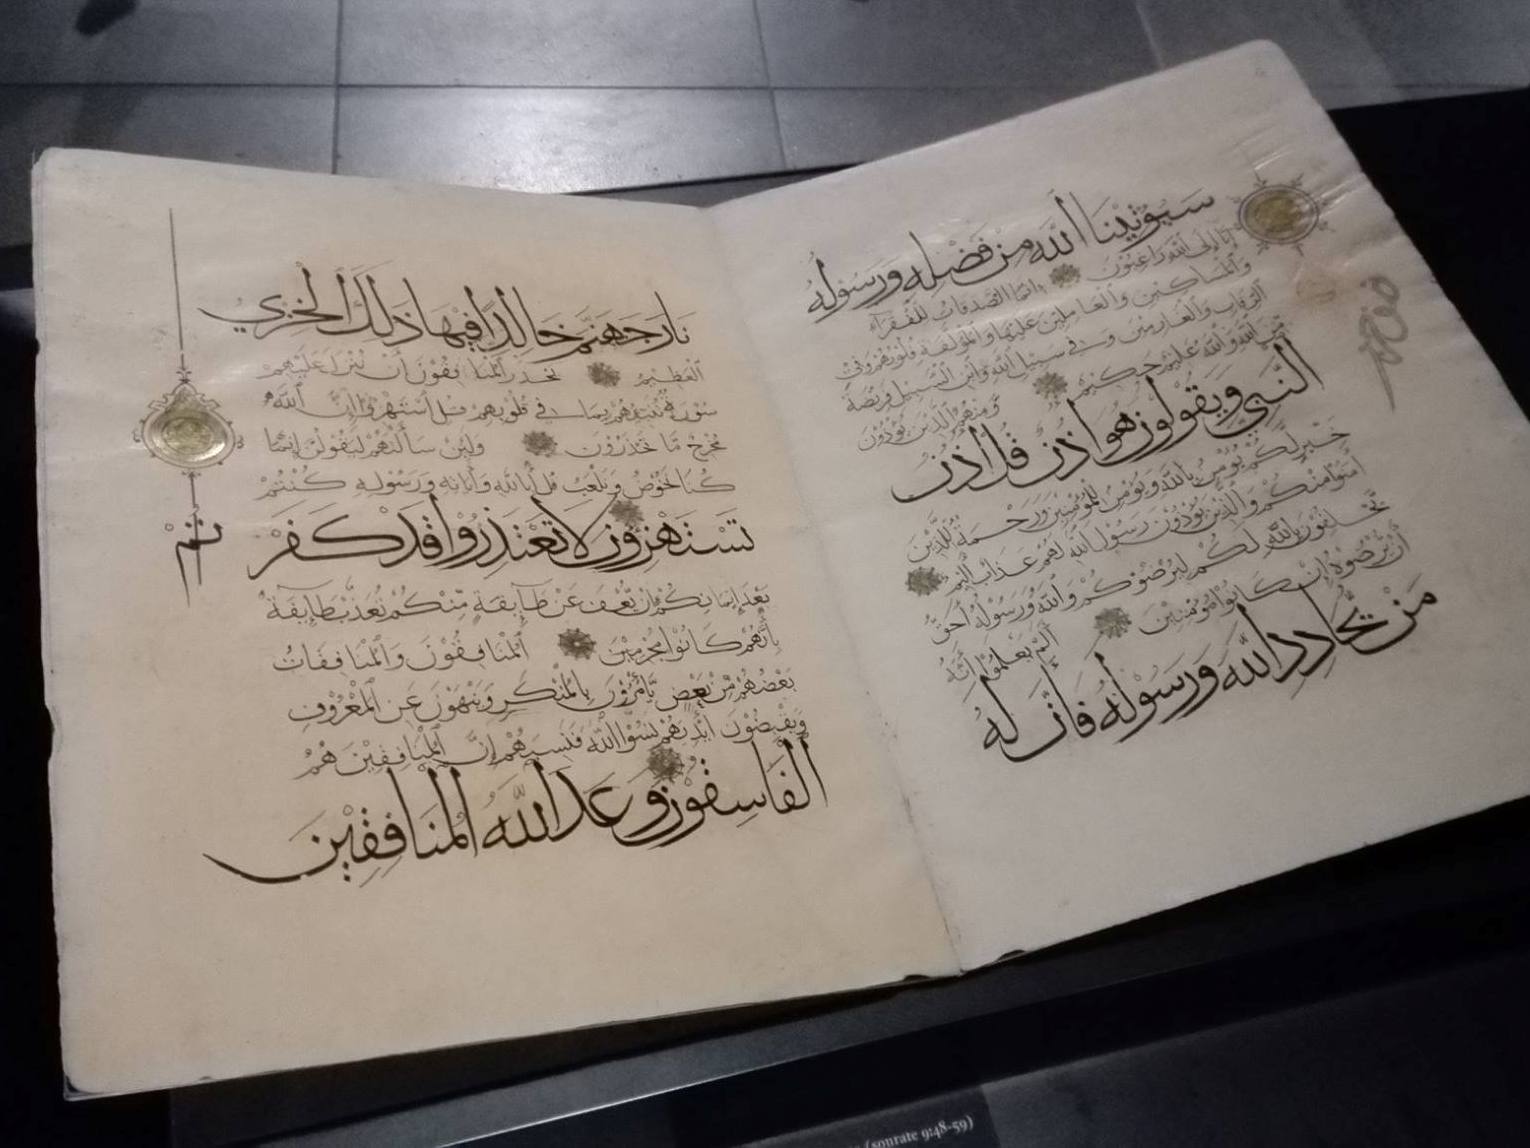 سَيُؤْتِينَا اللَّهُ مِنْ فَضْلِهِ وَرَسُولُهُ
إِنَّا إِلَى اللَّهِ رَاغِبُونَ إِنَّمَا الصَّدَقَاتُ لِلْفُقَرَاءِ
وَالْمَسَاكِينِ وَالْعَامِلِينَ عَلَيْهَا وَالْمُؤَلَّفَةِ قُلُوبُهُمْ وَفِي
الرِّقَابِ وَالْغَارِمِينَ وَفِي سَبِيلِ اللَّهِ وَابْنِ السَّبِيلِ فَرِيضَةً
مِنَ اللَّهِ وَاللَّهُ عَلِيمٌ حَكِيمٌ وَمِنْهُمُ الَّذِينَ يُؤْذُونَ
النَّبِيَّ وَيَقُولُونَ هُوَ أُذُنٌ قُلْ أُذُنُ
خَيْرٍ لَكُمْ يُؤْمِنُ بِاللَّهِ وَيُؤْمِنُ لِلْمُؤْمِنِينَ وَرَحْمَةٌ لِلَّذِينَ
آمَنُوا مِنْكُمْ وَالَّذِينَ يُؤْذُونَ رَسُولَ اللَّهِ لَهُمْ عَذَابٌ أَلِيمٌ
يَحْلِفُونَ بِاللَّهِ لَكُمْ لِيُرْضُوكُمْ وَاللَّهُ وَرَسُولُهُ أَحَقُّ
أَنْ يُرْضُوهُ إِنْ كَانُوا مُؤْمِنِينَ أَلَمْ يَعْلَمُوا أَنَّهُ
مَنْ يُحَادِدِ اللَّهَ وَرَسُولَهُ فَأَنَّ لَهُ
نَارَ جَهَنَّمَ خَالِدًا فِيهَا ذَلِكَ الْخِزْيُ
الْعَظِيمُ يَحْذَرُ الْمُنَافِقُونَ أَنْ تُنَزَّلَ عَلَيْهِمْ
سُورَةٌ تُنَبِّئُهُمْ بِمَا فِي قُلُوبِهِمْ قُلِ اسْتَهْزِئُوا إِنَّ اللَّهَ
مُخْرِجٌ مَا تَحْذَرُونَ وَلَئِنْ سَأَلْتَهُمْ لَيَقُولُنَّ إِنَّمَا
كُنَّا نَخُوضُ وَنَلْعَبُ قُلْ أَبِاللَّهِ وَآيَاتِهِ وَرَسُولِهِ كُنْتُمْ
تَسْتَهْزِئُونَ لَا تَعْتَذِرُوا قَدْ كَفَرْ
تُمْ
بَعْدَ إِيمَانِكُمْ إِنْ نَعْفُ عَنْ طَائِفَةٍ مِنْكُمْ نُعَذِّبْ طَائِفَةً
بِأَنَّهُمْ كَانُوا مُجْرِمِينَ الْمُنَافِقُونَ وَالْمُنَافِقَاتُ
بَعْضُهُمْ مِنْ بَعْضٍ يَأْمُرُونَ بِالْمُنْكَرِ وَيَنْهَوْنَ عَنِ الْمَعْرُوفِ
وَيَقْبِضُونَ أَيْدِيَهُمْ نَسُوا اللَّهَ فَنَسِيَهُمْ إِنَّ الْمُنَافِقِينَ هُمُ
الْفَاسِقُونَ وَعَدَ اللَّهُ الْمُنَافِقِينَ
(sourate 9:48-59)